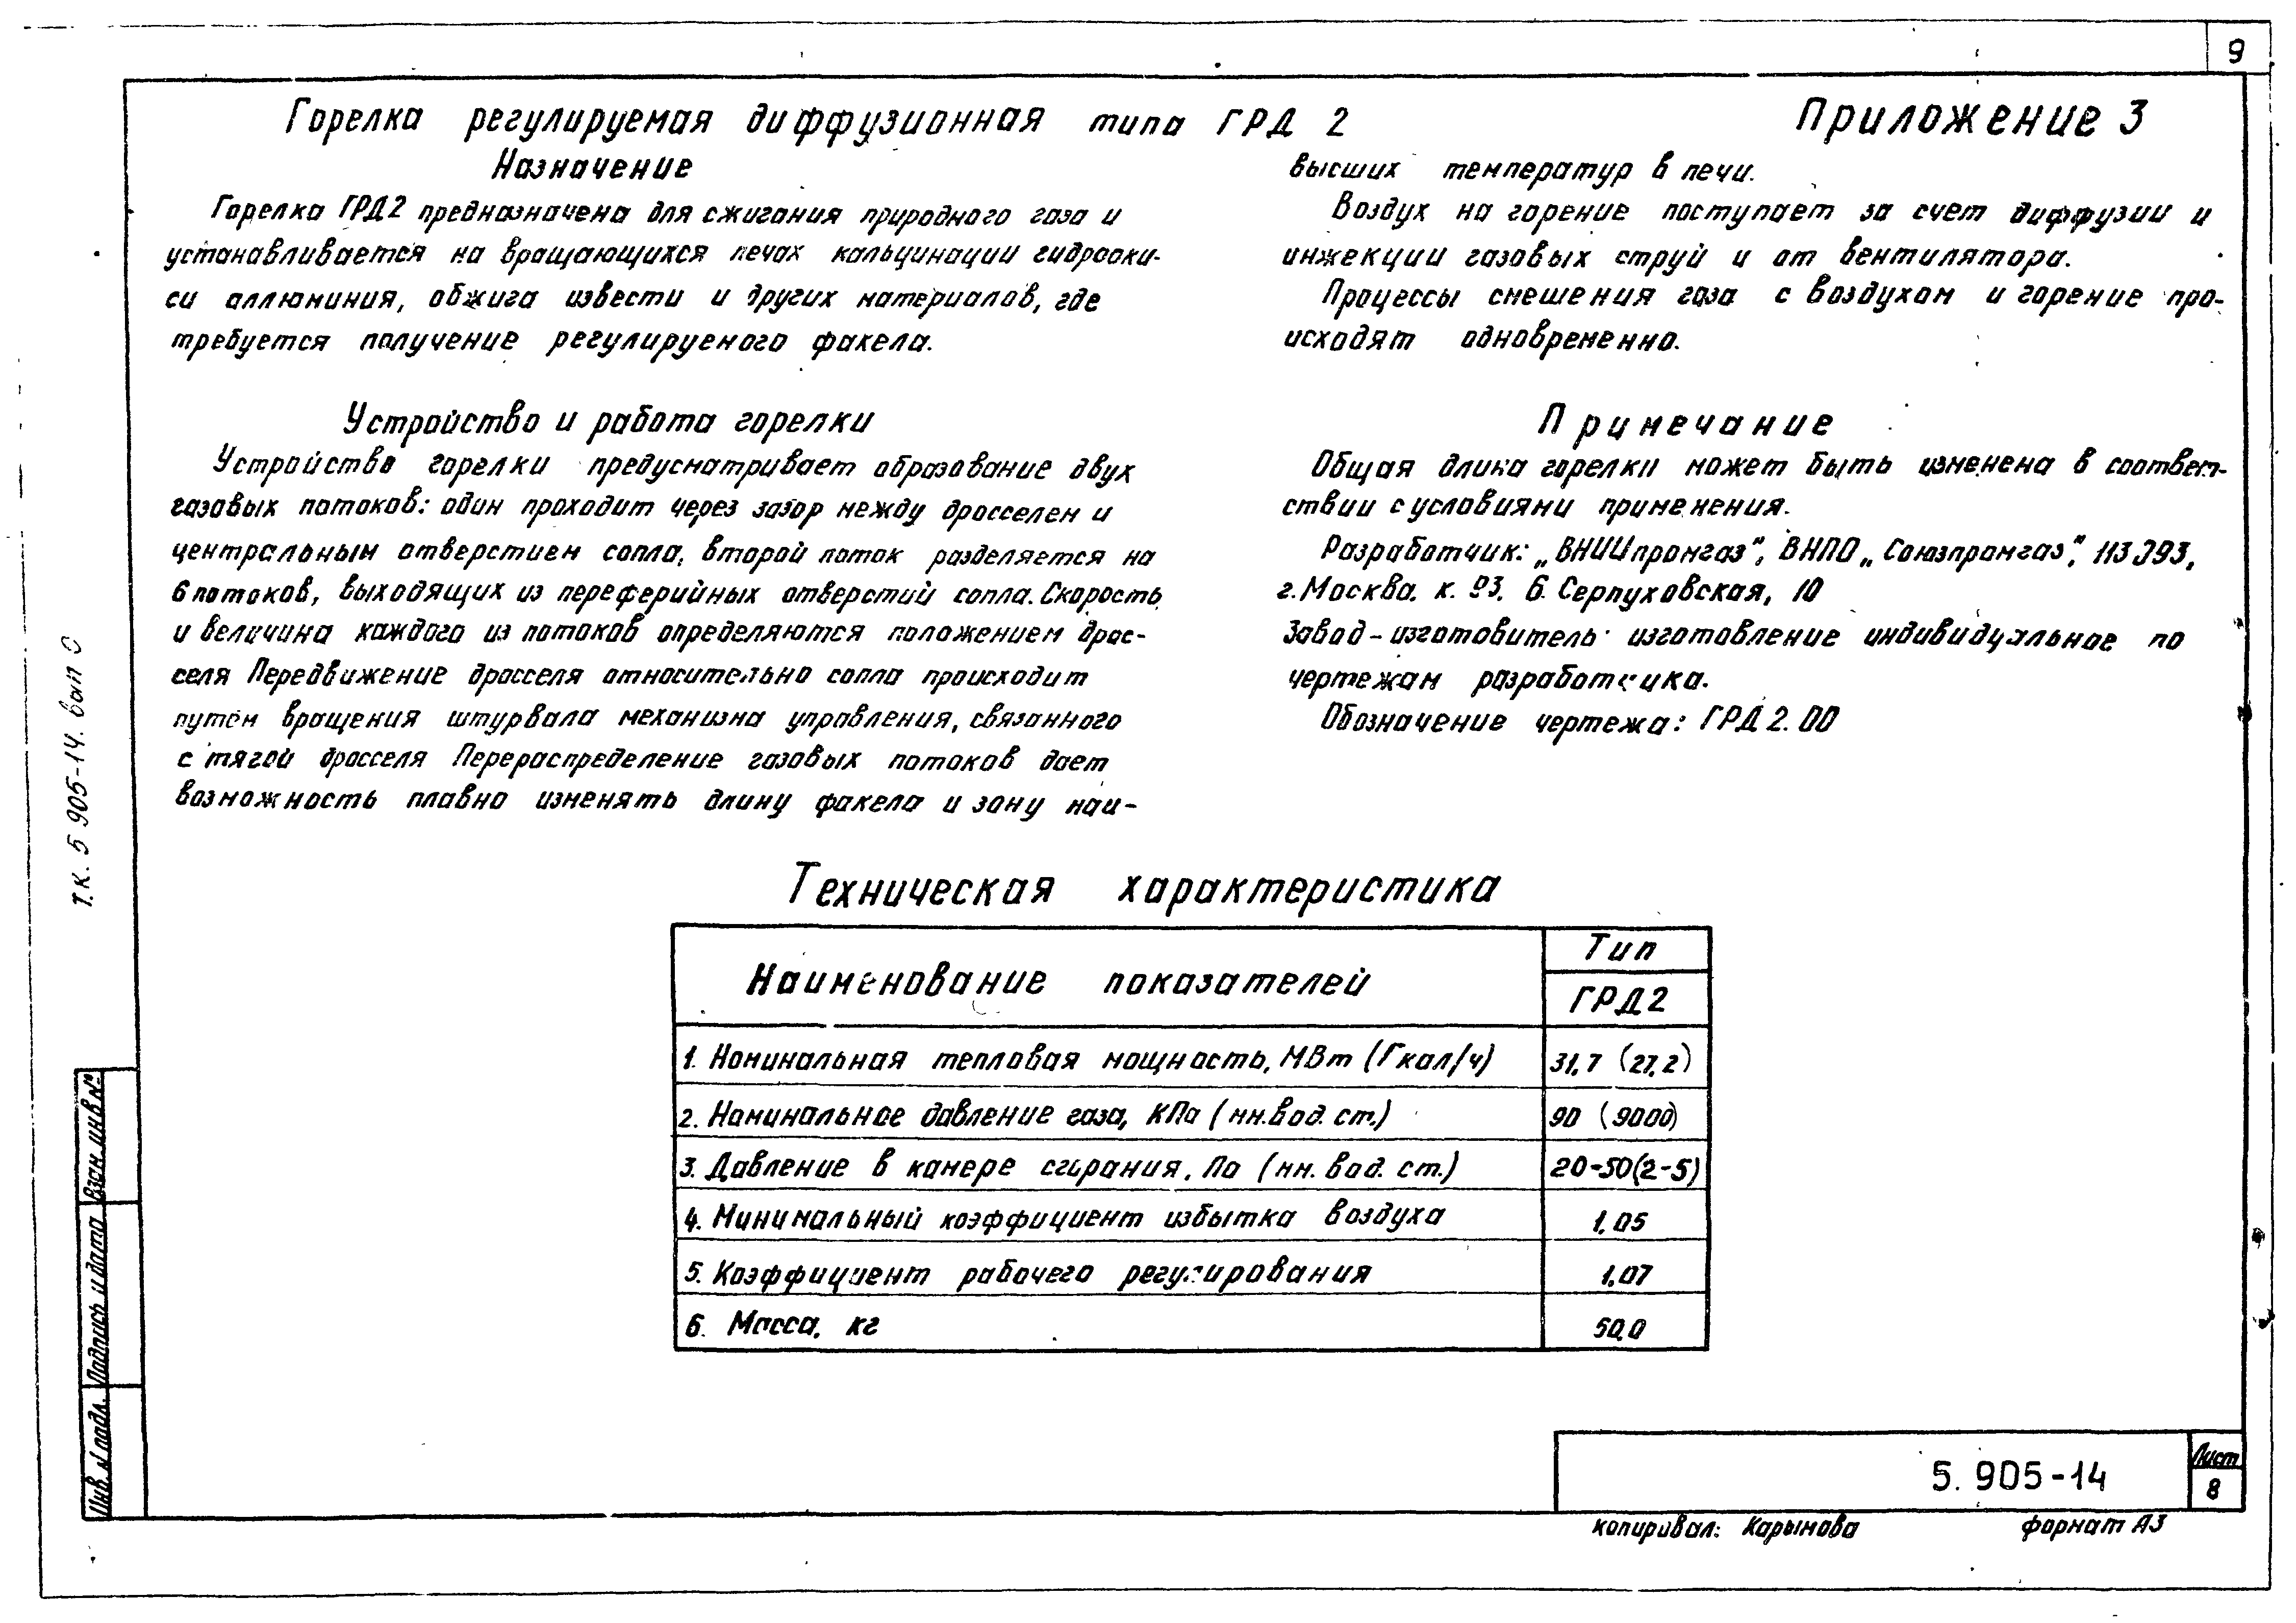 9
Приложение 3
Горелка регулируемая диффузионная типа ГРД 2
Назначение
Горелка ГРД2 предназначена для сжигания природного газа и
устанавливается на вращающихся печах кальцинации гидрооки-
си аллюминия, обжига извести и других материалов, где
требуется получение регулируемого факела.
Устройство и работа горелки
Устройство горелки предусматривает образование двух
газовых потоков: один проходит через зазор между дросселем и
центральным отверстием сопла, второй поток разделяется на
6 потоков, выходящих из переферийных отверстий сопла. Скорость
и величина каждого из потоков определяются положением дрос-
селя Передвижение дросселя относительно сопла происходит
путем вращения штурвала механизма управления, связанного
с тягой дросселя Перераспределение газовых потоков дает
возможность плавно изменять длину факела и зону наи-
высших температур в печи.
Воздух на горение поступает за счет диффузии и
инжекции газовых струй и от вентилятора.
Процессы смешения газа с воздухом и горение про-
исходят одновременно.
Примечание
Общая длина горелки может быть изменена в соответ-
ствии с условиями применения.
Разработчик: „ВНИИпромгаз", ВНПО „Союзпромгаз",
г. Москва. к. Б. Серпуховская, 10
Завод-изготовитель: изготовление индивидуальное по
чертежам разработчика.
Обозначение чертежа: ГРД 2.00
Техническая характеристика
Наименование показателей Тип
ГРД2
1. Номинальная тепловая мощность, МВт (Гкал/ч) 31,7 (27,2)
2. Номинальное давление газа, КПа (мм.вод. ст.) 90 (9000)
3. Давление в камере сгорания, Па (мм. вод. ст.) 20-50(2-5)
4. Минимальный коэффициент избытка воздуха 1,05
5. Коэффициент рабочего регулирования 1,07
6. Масса, кг 50,0
Т.К. 5 905-14. вып 0
Взам инв №
Подпись и дата
Инв. № подл.
5. 905-14
Лист
8
копировал: Карымова формат А3